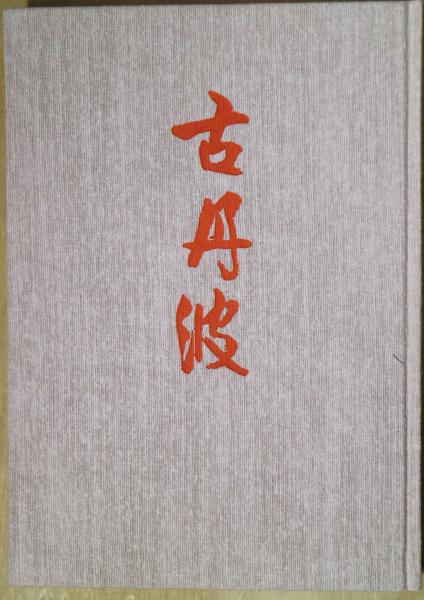 古丹波